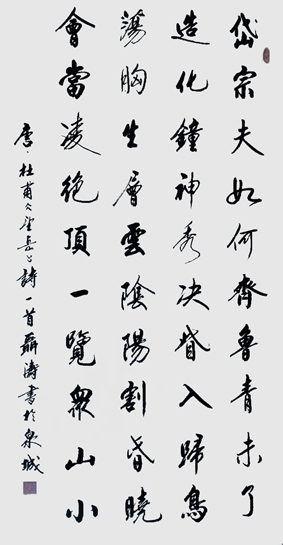 岱宗夫如何齊魯青未了
造化鐘神秀决眥入歸鳥
蕩胸生層雲陰陽割昏曉
會當凌絕頂一覽衆山小
唐·杜甫《望岳》詩一首聶濤書於泉城